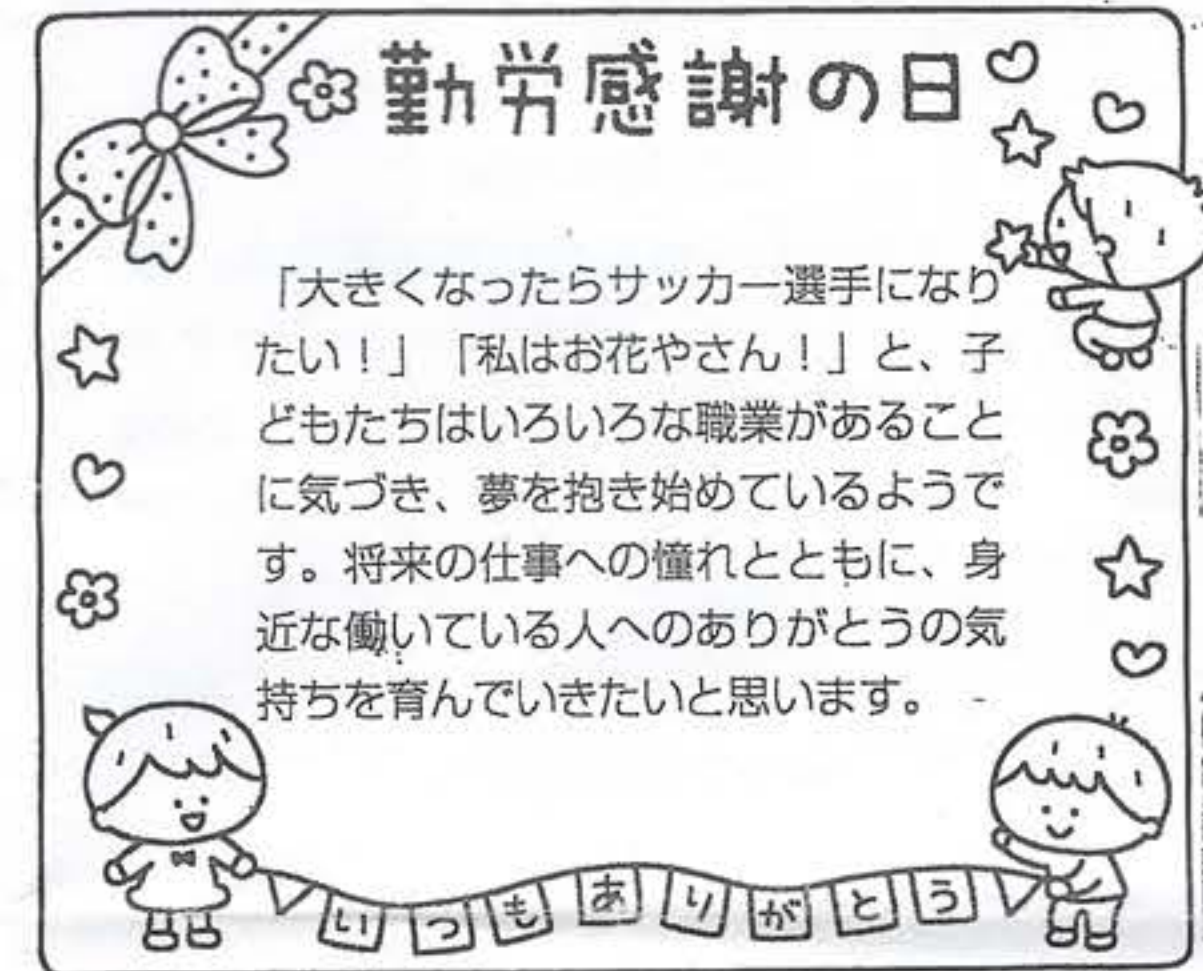 勤労感謝の日
「大きくなったらサッカー選手になり
たい！」「私はお花やさん！」と、子
どもたちはいろいろな職業があること
に気づき、夢を抱き始めているようで
す。将来の仕事への憧れとともに、身
近な働いている人へのありがとうの気
持ちを育んでいきたいと思います。
いつもありがとう